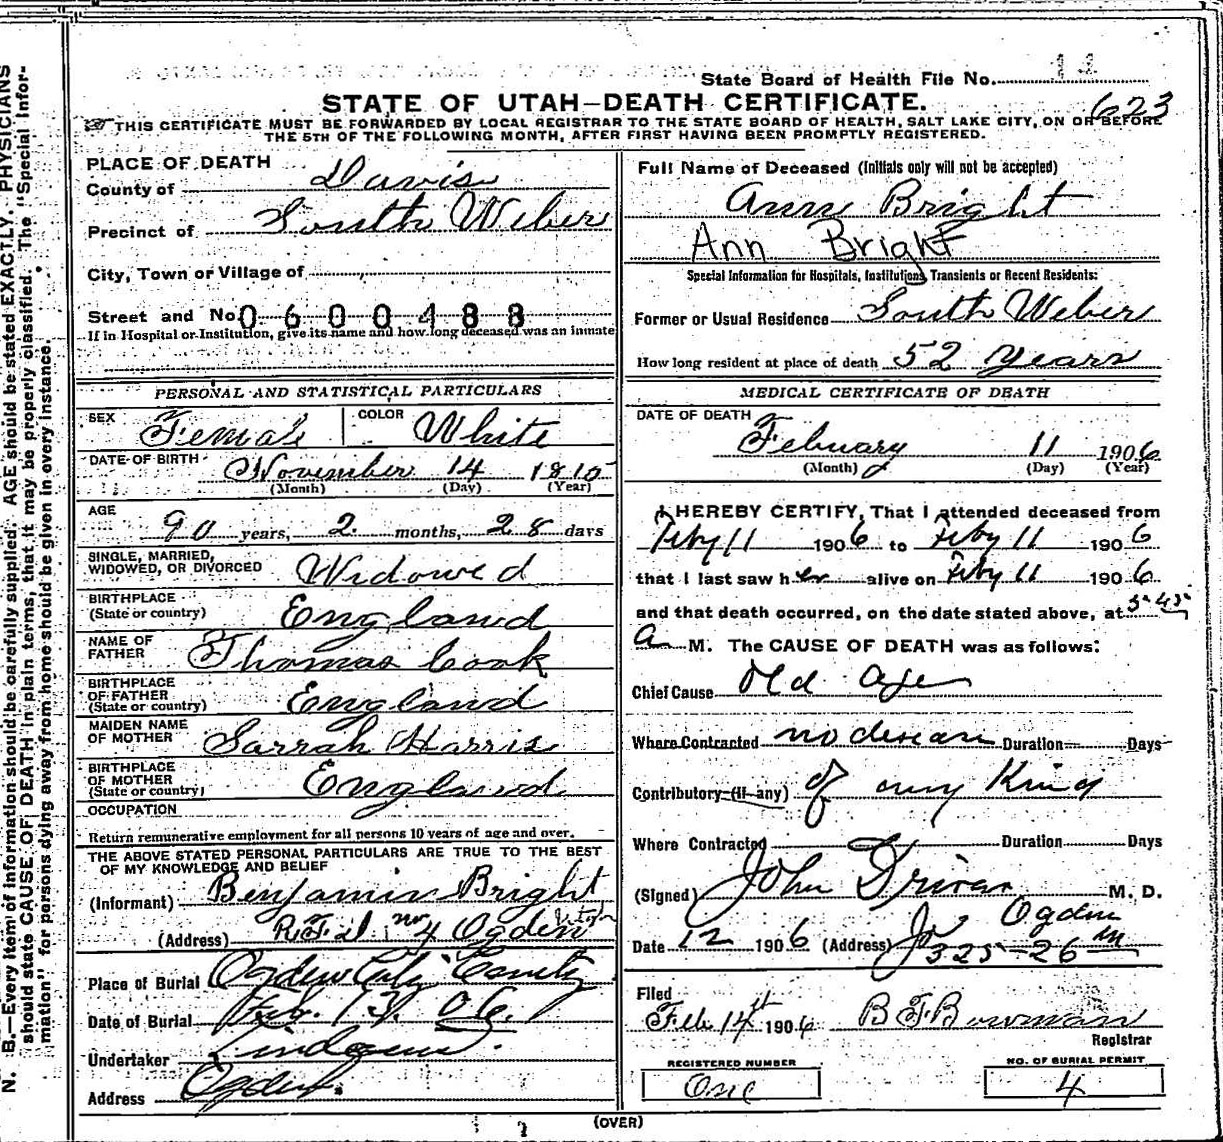 State Board of Health File No. 11
STATE OF UTAH—DEATH CERTIFICATE. 623
THIS CERTIFICATE MUST BE FORWARDED BY LOCAL REGISTRAR TO THE STATE BOARD OF HEALTH, SALT LAKE CITY, ON OR BEFORE
THE 5TH OF THE FOLLOWING MONTH, AFTER FIRST HAVING BEEN PROMPTLY REGISTERED.
N. B.—Every item of information should be carefully supplied. AGE should be stated EXACTLY. PHYSICIANS
should state CAUSE OF DEATH in plain terms, that it may be properly classified. The "Special Infor-
mation" for persons dying away from home should be given in every instance.
PLACE OF DEATH
County of Davis
Precinct of South Weber
City, Town or Village of
Street and No. 0600488
If in Hospital or Institution, give its name and how long deceased was an inmate
PERSONAL AND STATISTICAL PARTICULARS
SEX Female COLOR White
DATE OF BIRTH November 14 1815
(Month) (Day) (Year)
AGE
90 years, 2 months, 28 days
SINGLE, MARRIED,
WIDOWED, OR DIVORCED Widowed
BIRTHPLACE
(State or country) England
NAME OF
FATHER Thomas Cook
BIRTHPLACE
OF FATHER
(State or country) England
MAIDEN NAME
OF MOTHER Sarrah Harris
BIRTHPLACE
OF MOTHER
(State or country) England
OCCUPATION
Return remunerative employment for all persons 10 years of age and over.
THE ABOVE STATED PERSONAL PARTICULARS ARE TRUE TO THE BEST
OF MY KNOWLEDGE AND BELIEF
(Informant) Benjamin Bright
(Address) R.F.D. no 4 Ogden Utah
Place of Burial Ogden City
Date of Burial Feb. 13. 06.
Undertaker Lindquist.
Address Ogden.
Full Name of Deceased (Initials only will not be accepted)
Ann Bright
Ann Bright
Special Information for Hospitals, Institutions, Transients or Recent Residents:
Former or Usual Residence South Weber
How long resident at place of death 52 years
MEDICAL CERTIFICATE OF DEATH
DATE OF DEATH
Febuary 11 1906
(Month) (Day) (Year)
I HEREBY CERTIFY, That I attended deceased from
Feby 11 1906 to Feby 11 1906
that I last saw her alive on Feby 11 1906
and that death occurred, on the date stated above, at 5-45
a M. The CAUSE OF DEATH was as follows:
Chief Cause Old Age
Where Contracted no disease Duration Days
Contributory (if any) of any Kind
Where Contracted Duration Days
(Signed) John Driver M. D.
Ogden
Date 12 1906 (Address) 325-26 th
Filed
Feb 14th 1906 B F Bowman
Registrar
REGISTERED NUMBER
One
NO. OF BURIAL PERMIT
4
(OVER)